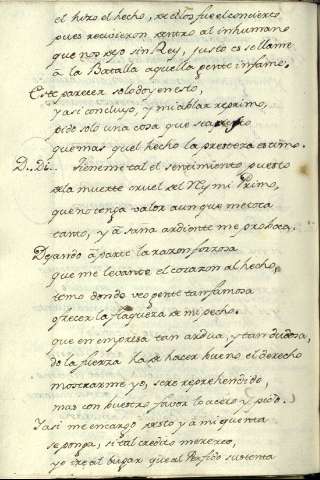 el hizo el hecho, de ellos fue el concierto
pues recivieron dentro al inhumano
que nos dejo sin Rey, justo es se llame
a la Batalla aquella gente infame.
Este parecer solo doy en esto,
y asi concluyo, y mi ablar reprimo,
pido solo una cosa que sea presto
que mas quel hecho la presteza estimo.
D. Di. Tieneme tal el sentimiento puesto
de la muerte cruel del Rey mi Primo,
que no tengo valor aunque me toca
tanto, y a saña ardiente me proboca.
Dejando aparte la razon forzosa
que me levante el corazon al hecho,
temo donde veo gente tan famosa
ofrecer la flaqueza de mi pecho.
que en empresa tan ardua, y tan dudosa,
do la fuerza ha de hacer bueno el derecho
mostrarme yo, sere reprehendido,
mas con vuestro favor lo aceto y pido.
Y asi me encargo desto y a mi quenta
se ponga, si tal credito merezco,
yo ire al lugar que al Perfido sustenta